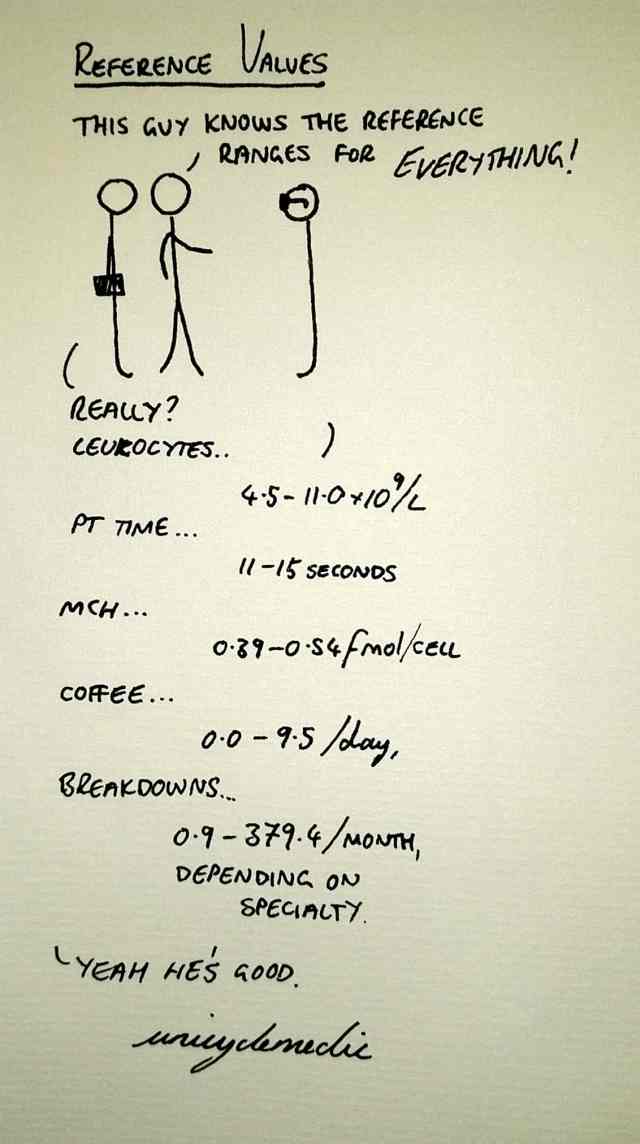 REFERENCE VALUES
THIS GUY KNOWS THE REFERENCE
RANGES FOR EVERYTHING!
REALLY?
LEUKOCYTES..
4.5-11.0×10⁹/L
PT TIME...
11-15 SECONDS
MCH...
0.39-0.54 fmol/CELL
COFFEE...
0.0-9.5/day,
BREAKDOWNS...
0.9-379.4/MONTH,
DEPENDING ON
SPECIALTY.
YEAH HE'S GOOD.
unicyclemedic